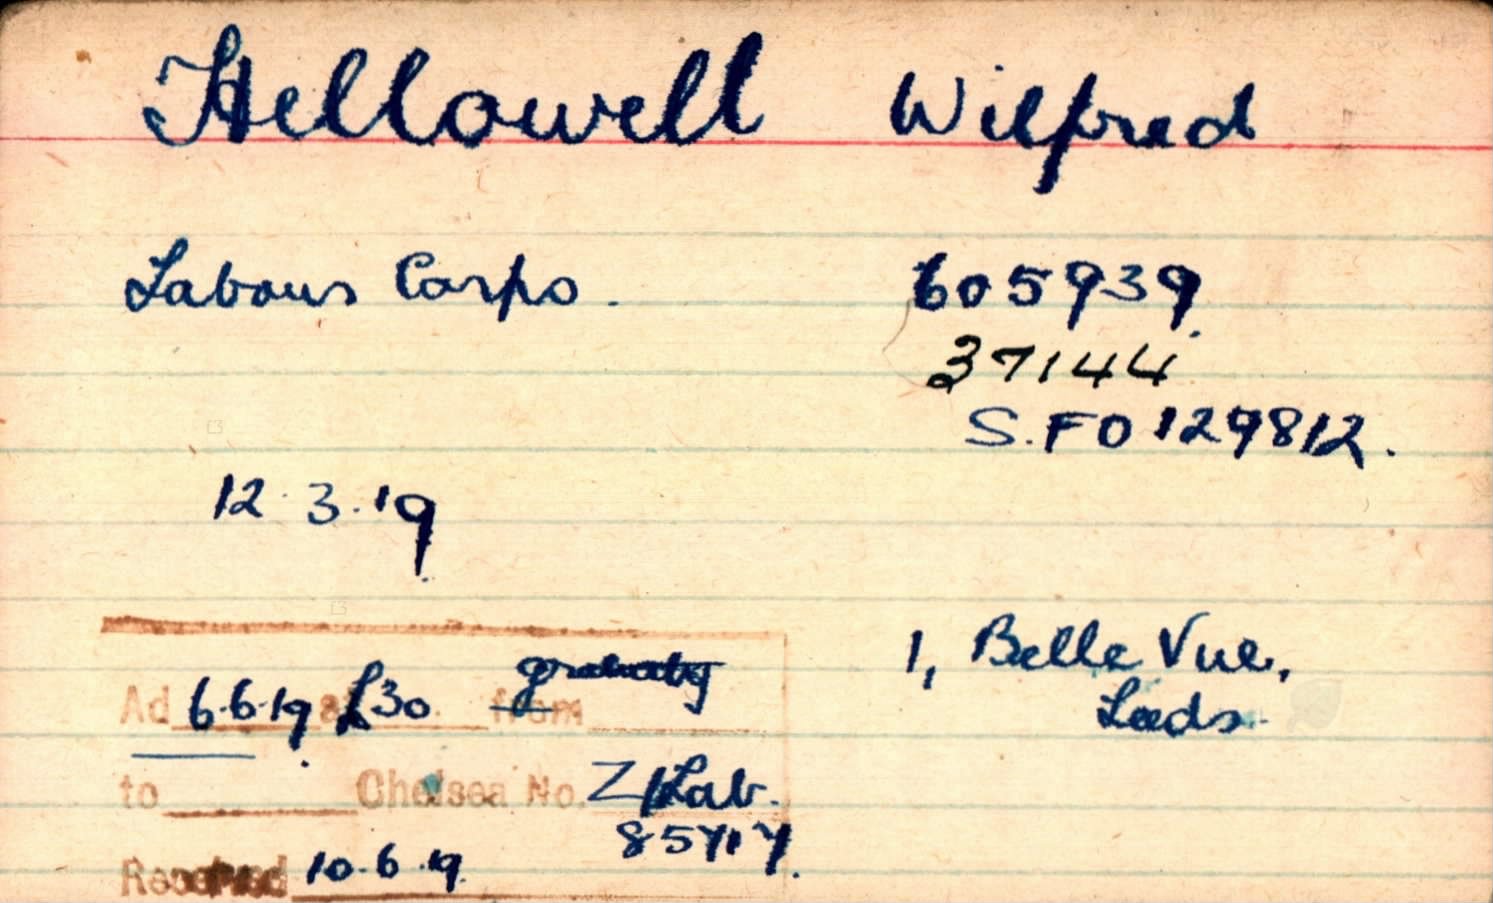 Hellowell Wilfred
Labour Corps. 605939
37144
S.FO 129812.
12.3.19
1, Belle Vue,
Leeds.
Ad 6.6.19 at £30 from gratuity
to Chelsea No. Z/Lab.
85717.
Received 10.6.19